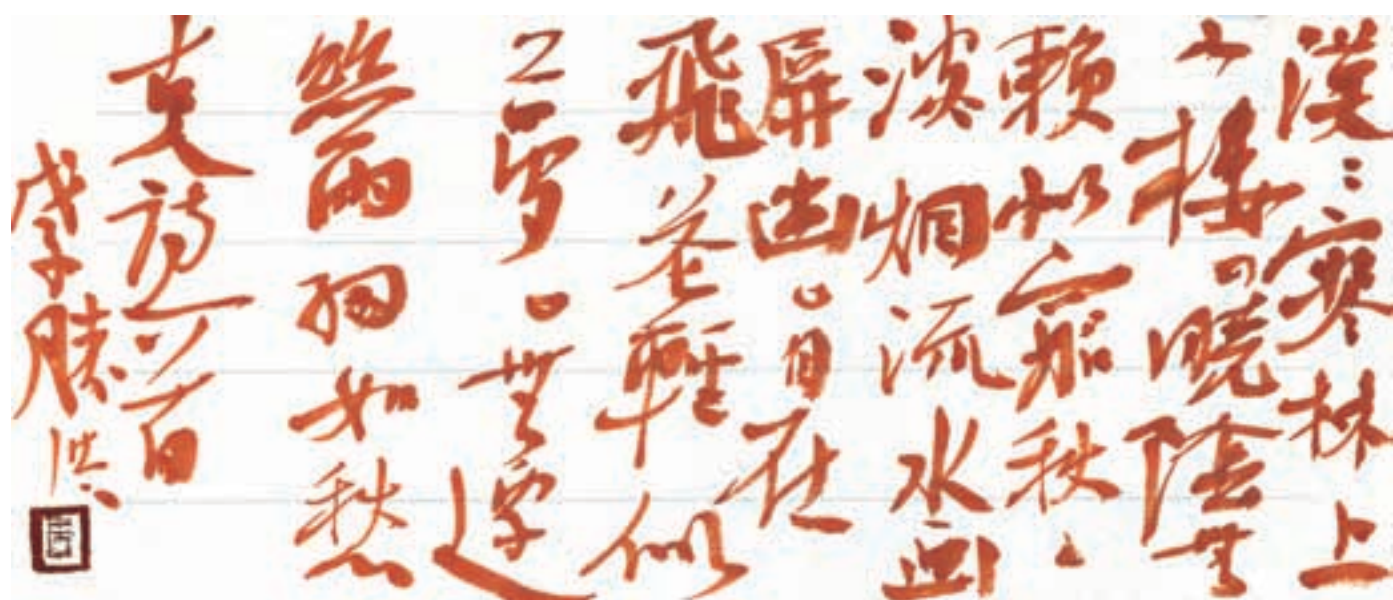 漠〻寒林上
小樓。曉陰無
賴似窮秋、
淡烟流水画
屏幽。自在
飛花輕似
夢。無邊
絲雨細如愁
詩一首
戊子勝洪